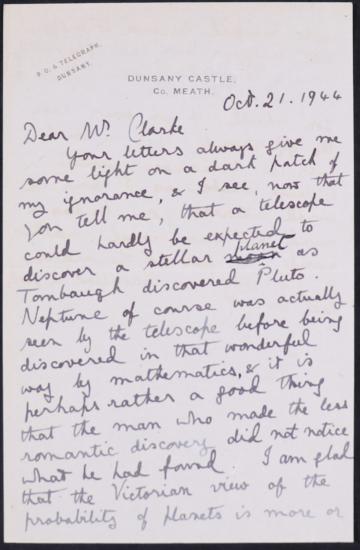 P.O. & TELEGRAPH.
DUNSANY.
DUNSANY CASTLE,
Co. MEATH.
Oct. 21. 1944
Dear Mr. Clarke
Your letters always give me
some light on a dark patch of
my ignorance, & I see, now that
you tell me, that a telescope
could hardly be expected to
discover a stellar planet as
Tombaugh discovered Pluto.
Neptune of course was actually
seen by the telescope before being
discovered in that wonderful
way by mathematics, & it is
perhaps rather a good thing
that the man who made the less
romantic discovery did not notice
what he had found. I am glad
that the Victorian view of the
probability of planets is more or